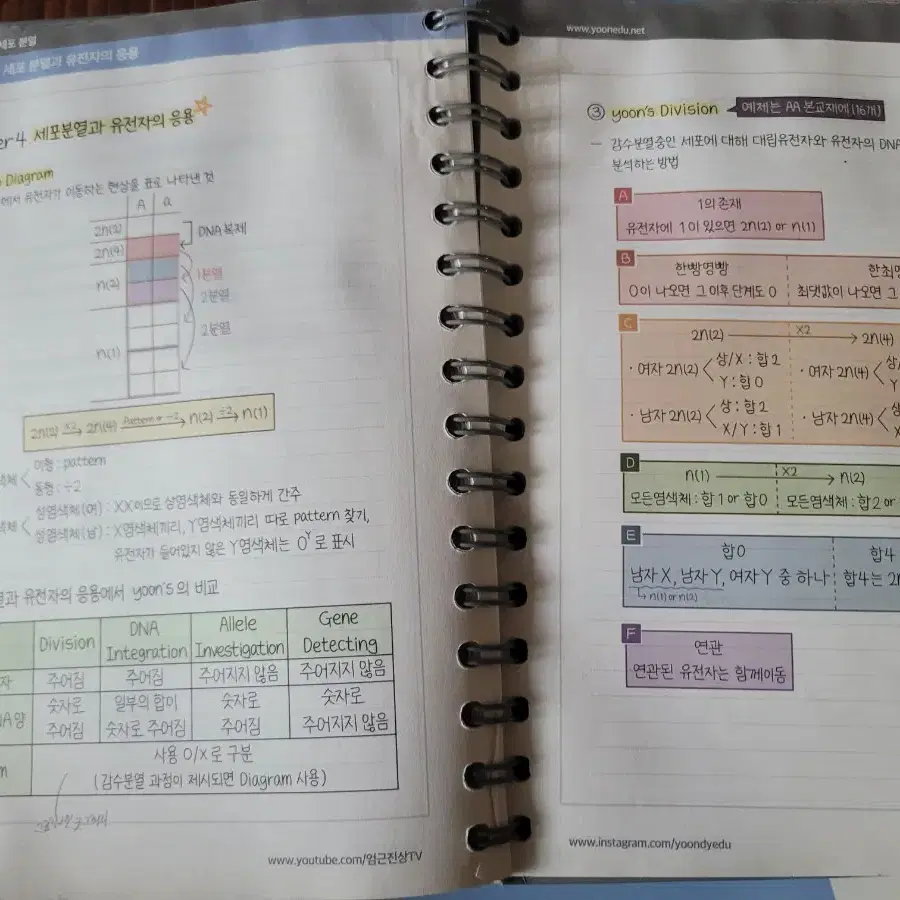 세포 분열
세포 분열과 유전자의 응용
er4 세포분열과 유전자의 응용
Diagram
에서 유전자가 이동하는 현상을 표로 나타낸 것
A a
2n(2)
2n(4)
n(2)
n(1)
DNA 복제
1분열
2분열
2분열
2n(2) ×2→ 2n(4) Pattern or ÷2→ n(2) ÷2→ n(1)
색체 < 이형 : pattern
동형 : ÷2
색체 < 성염색체(여) : XX이므로 상염색체와 동일하게 간주
성염색체(남) : X염색체끼리, Y염색체끼리 따로 pattern 찾기,
유전자가 들어있지 않은 Y염색체는 0ʸ로 표시
과 유전자의 응용에서 yoon's의 비교
Division DNA Integration Allele Investigation Gene Detecting
자 주어짐 주어짐 주어지지 않음 주어지지 않음
A양 숫자로 주어짐 일부의 합이 숫자로 주어짐 숫자로 주어짐 숫자로 주어지지 않음
m 사용 O/X로 구분
(감수분열 과정이 제시되면 Diagram 사용)
www.youtube.com/엄근진상TV
www.yoonedu.net
③ yoon's Division 예제는 AA 본교재에(16개)
— 감수분열중인 세포에 대해 대립유전자와 유전자의 DNA
분석하는 방법
A
1의 존재
유전자에 1이 있으면 2n(2) or n(1)
B
한빵영빵
0이 나오면 그 이후 단계도 0
한최영
최댓값이 나오면 그
C
2n(2) ×2→ 2n(4)
· 여자 2n(2) < 상/X : 합2
Y : 합0
· 여자 2n(4) < 상/
Y
· 남자 2n(2) < 상 : 합2
X/Y : 합1
· 남자 2n(4) < 상
X
D
n(1) ×2→ n(2)
모든염색체 : 합1 or 합0
모든염색체 : 합2 or
E
합0
남자 X, 남자 Y, 여자 Y 중 하나
↳ n(1) or n(2)
합4
합4는 2n
F
연관
연관된 유전자는 함께이동
www.instagram.com/yoondyedu